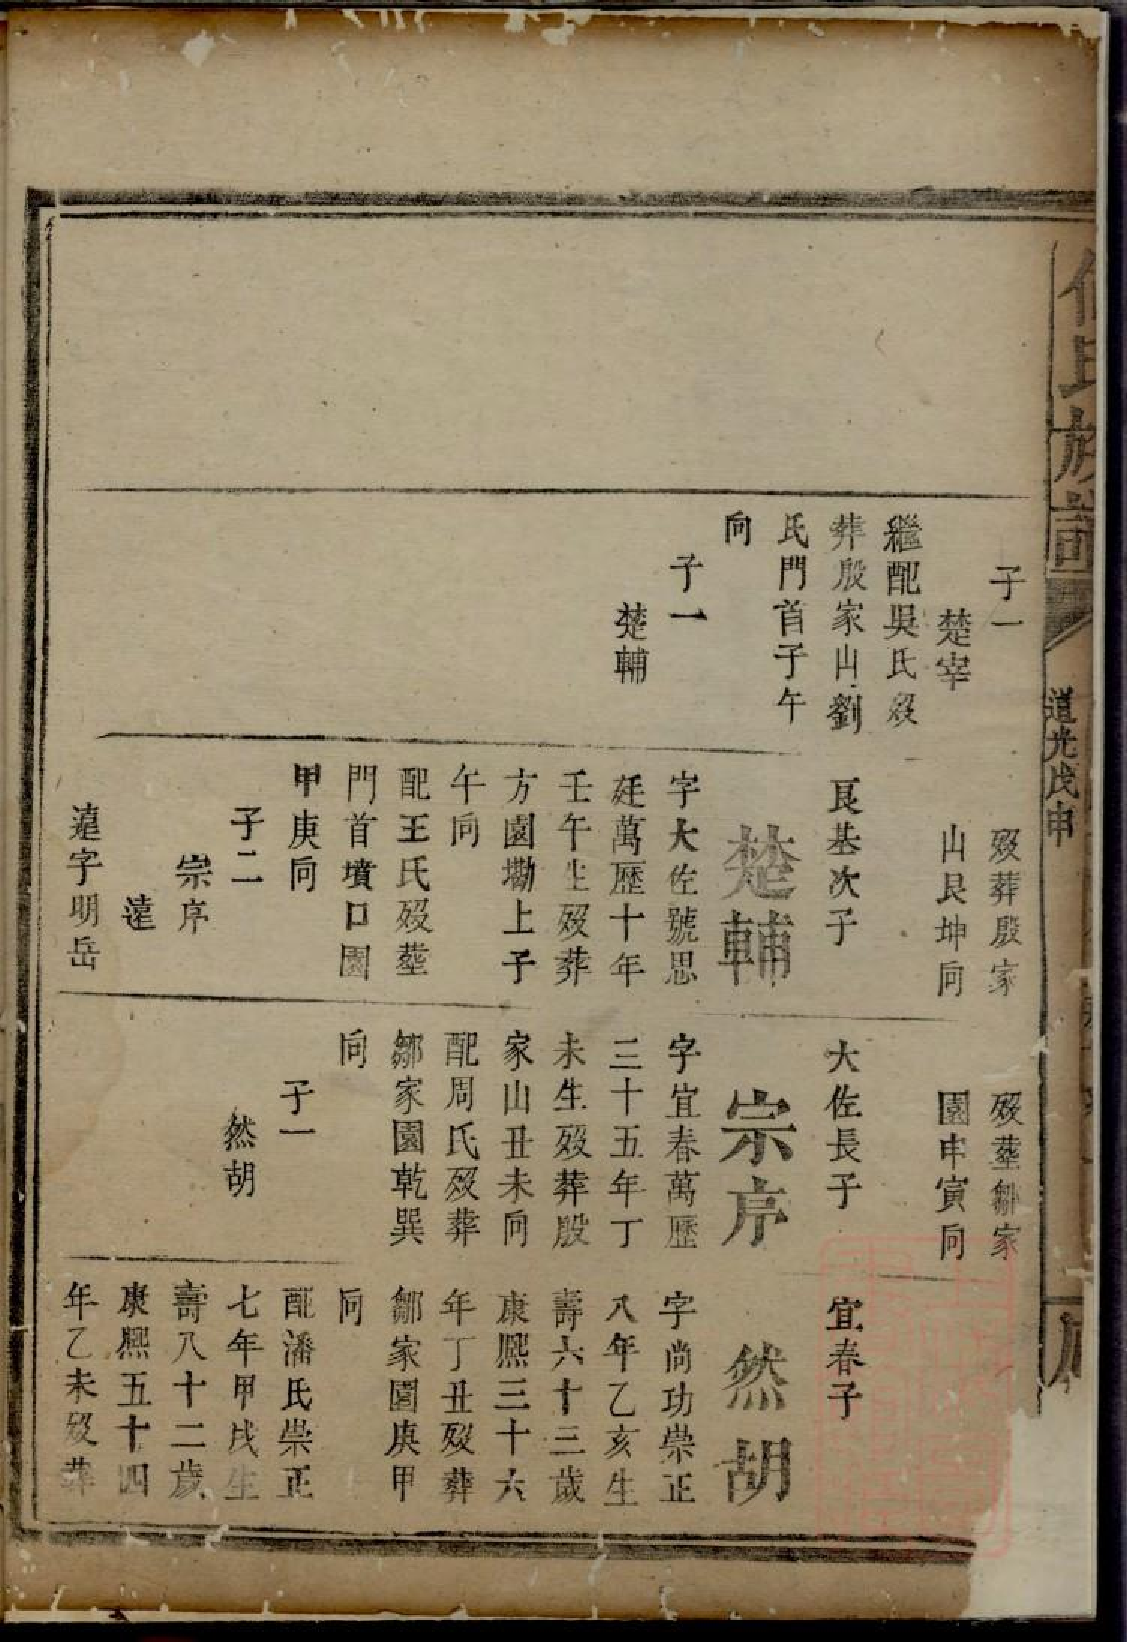 氏族譜
道光戊申
子一
楚宰
繼配吳氏歿
葬殷家山劉
氏門首子午
向
子一
楚輔
歿葬殷家
山艮坤向
良基次子
楚輔
字大佐號思
廷萬歷十年
壬午生歿葬
方園墈上子
午向
配王氏歿塟
門首墳口園
甲庚向
子二
宗序
遠
遠字明岳
歿塟鄒家
園申寅向
大佐長子
宗序
字宜春萬歷
三十五年丁
未生歿葬殷
家山丑未向
配周氏歿葬
鄒家園乾巽
向
子一
然胡
宜春子
然胡
字尚功崇正
八年乙亥生
壽六十三歲
康熙三十六
年丁丑歿葬
鄒家園庚甲
向
配潘氏崇正
七年甲戌生
壽八十二歲
康熙五十四
年乙未歿葬